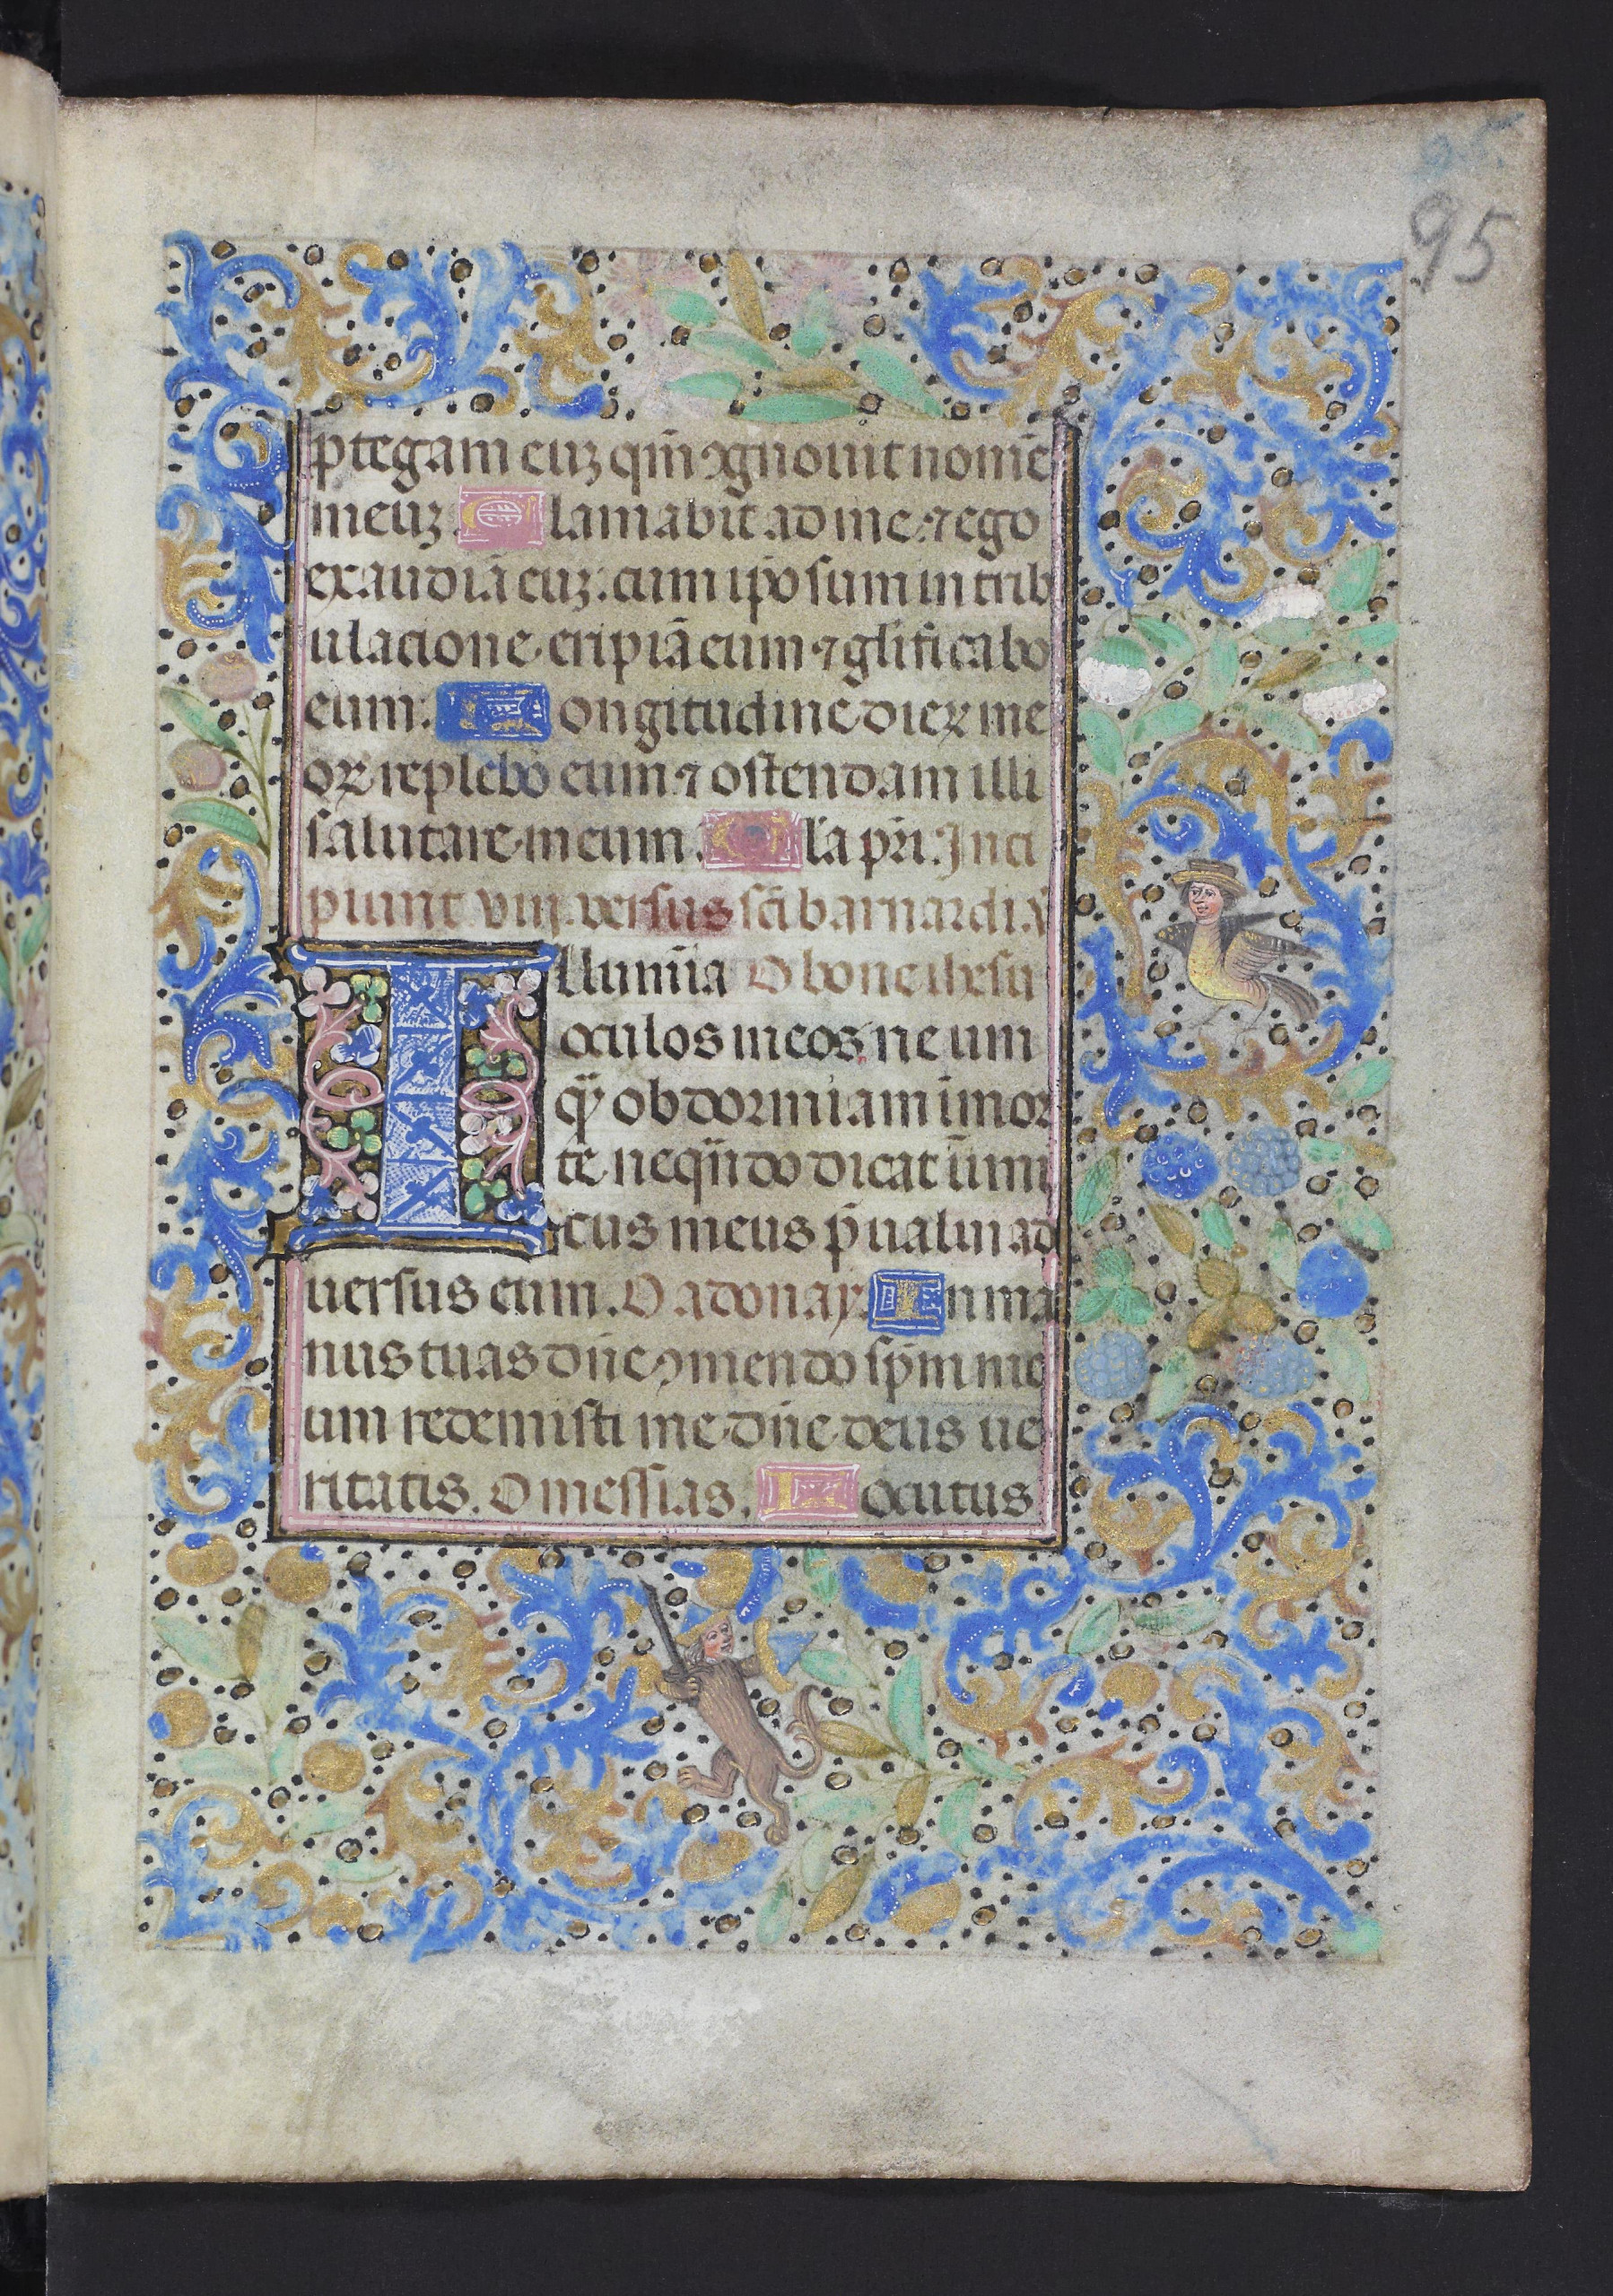 95
95
ptegam euꝫ qm̄ ꝯgnouit nomē
meuꝫ. Clamabit ad me ⁊ ego
exaudiā euꝫ: cum ip̄o sum in trib
ulacione eripiā eum ⁊ glificabo
eum. Longitudine dieꝝ me
oꝝ replebo eum ⁊ ostendam illi
salutare meum. Gl̄a pr̄i. Inci
piunt viij. versus sc̄i barnardi.
Illumīa O bone ihesu
oculos meos ne um
qꝫ obdormiam ī mor
te neqn̄do dicat inimi
cus meus p̄ualui ad
uersus eum. O adonay. In ma
nus tuas dn̄e ꝯmendo sp̄m me
um redemisti me dn̄e deus ue
ritatis. O messias. Locutus